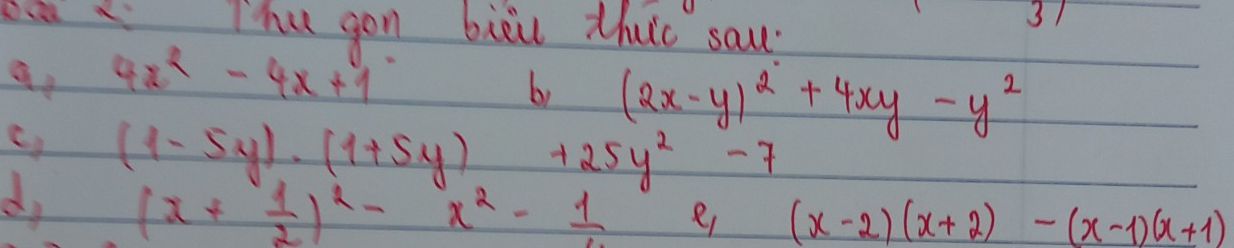 2: Thu gọn biểu thức sau:
a, 4x² - 4x + 1 b, (2x - y)² + 4xy - y²
c, (1 - 5y) . (1 + 5y) + 25y² - 7
d, (x + 1/2)² - x² - 1/4 e, (x - 2)(x + 2) - (x - 1)(x + 1)